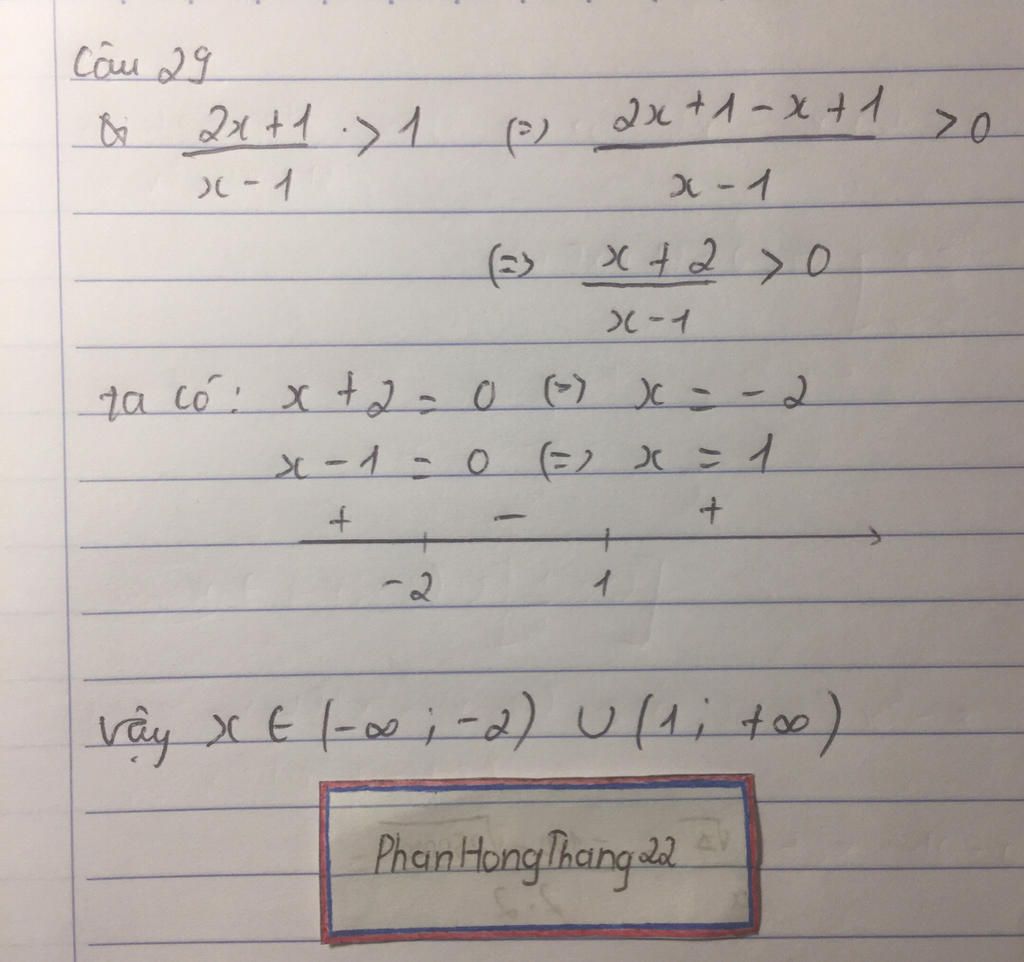 Câu 29
a, (2x+1)/(x-1) > 1 (=) (2x+1-x+1)/(x-1) > 0
(=) (x+2)/(x-1) > 0
ta có: x+2 = 0 (=) x = -2
x-1 = 0 (=) x = 1
+ - +
-2 1
Vậy x ∈ (-∞; -2) ∪ (1; +∞)
PhanHongThang22